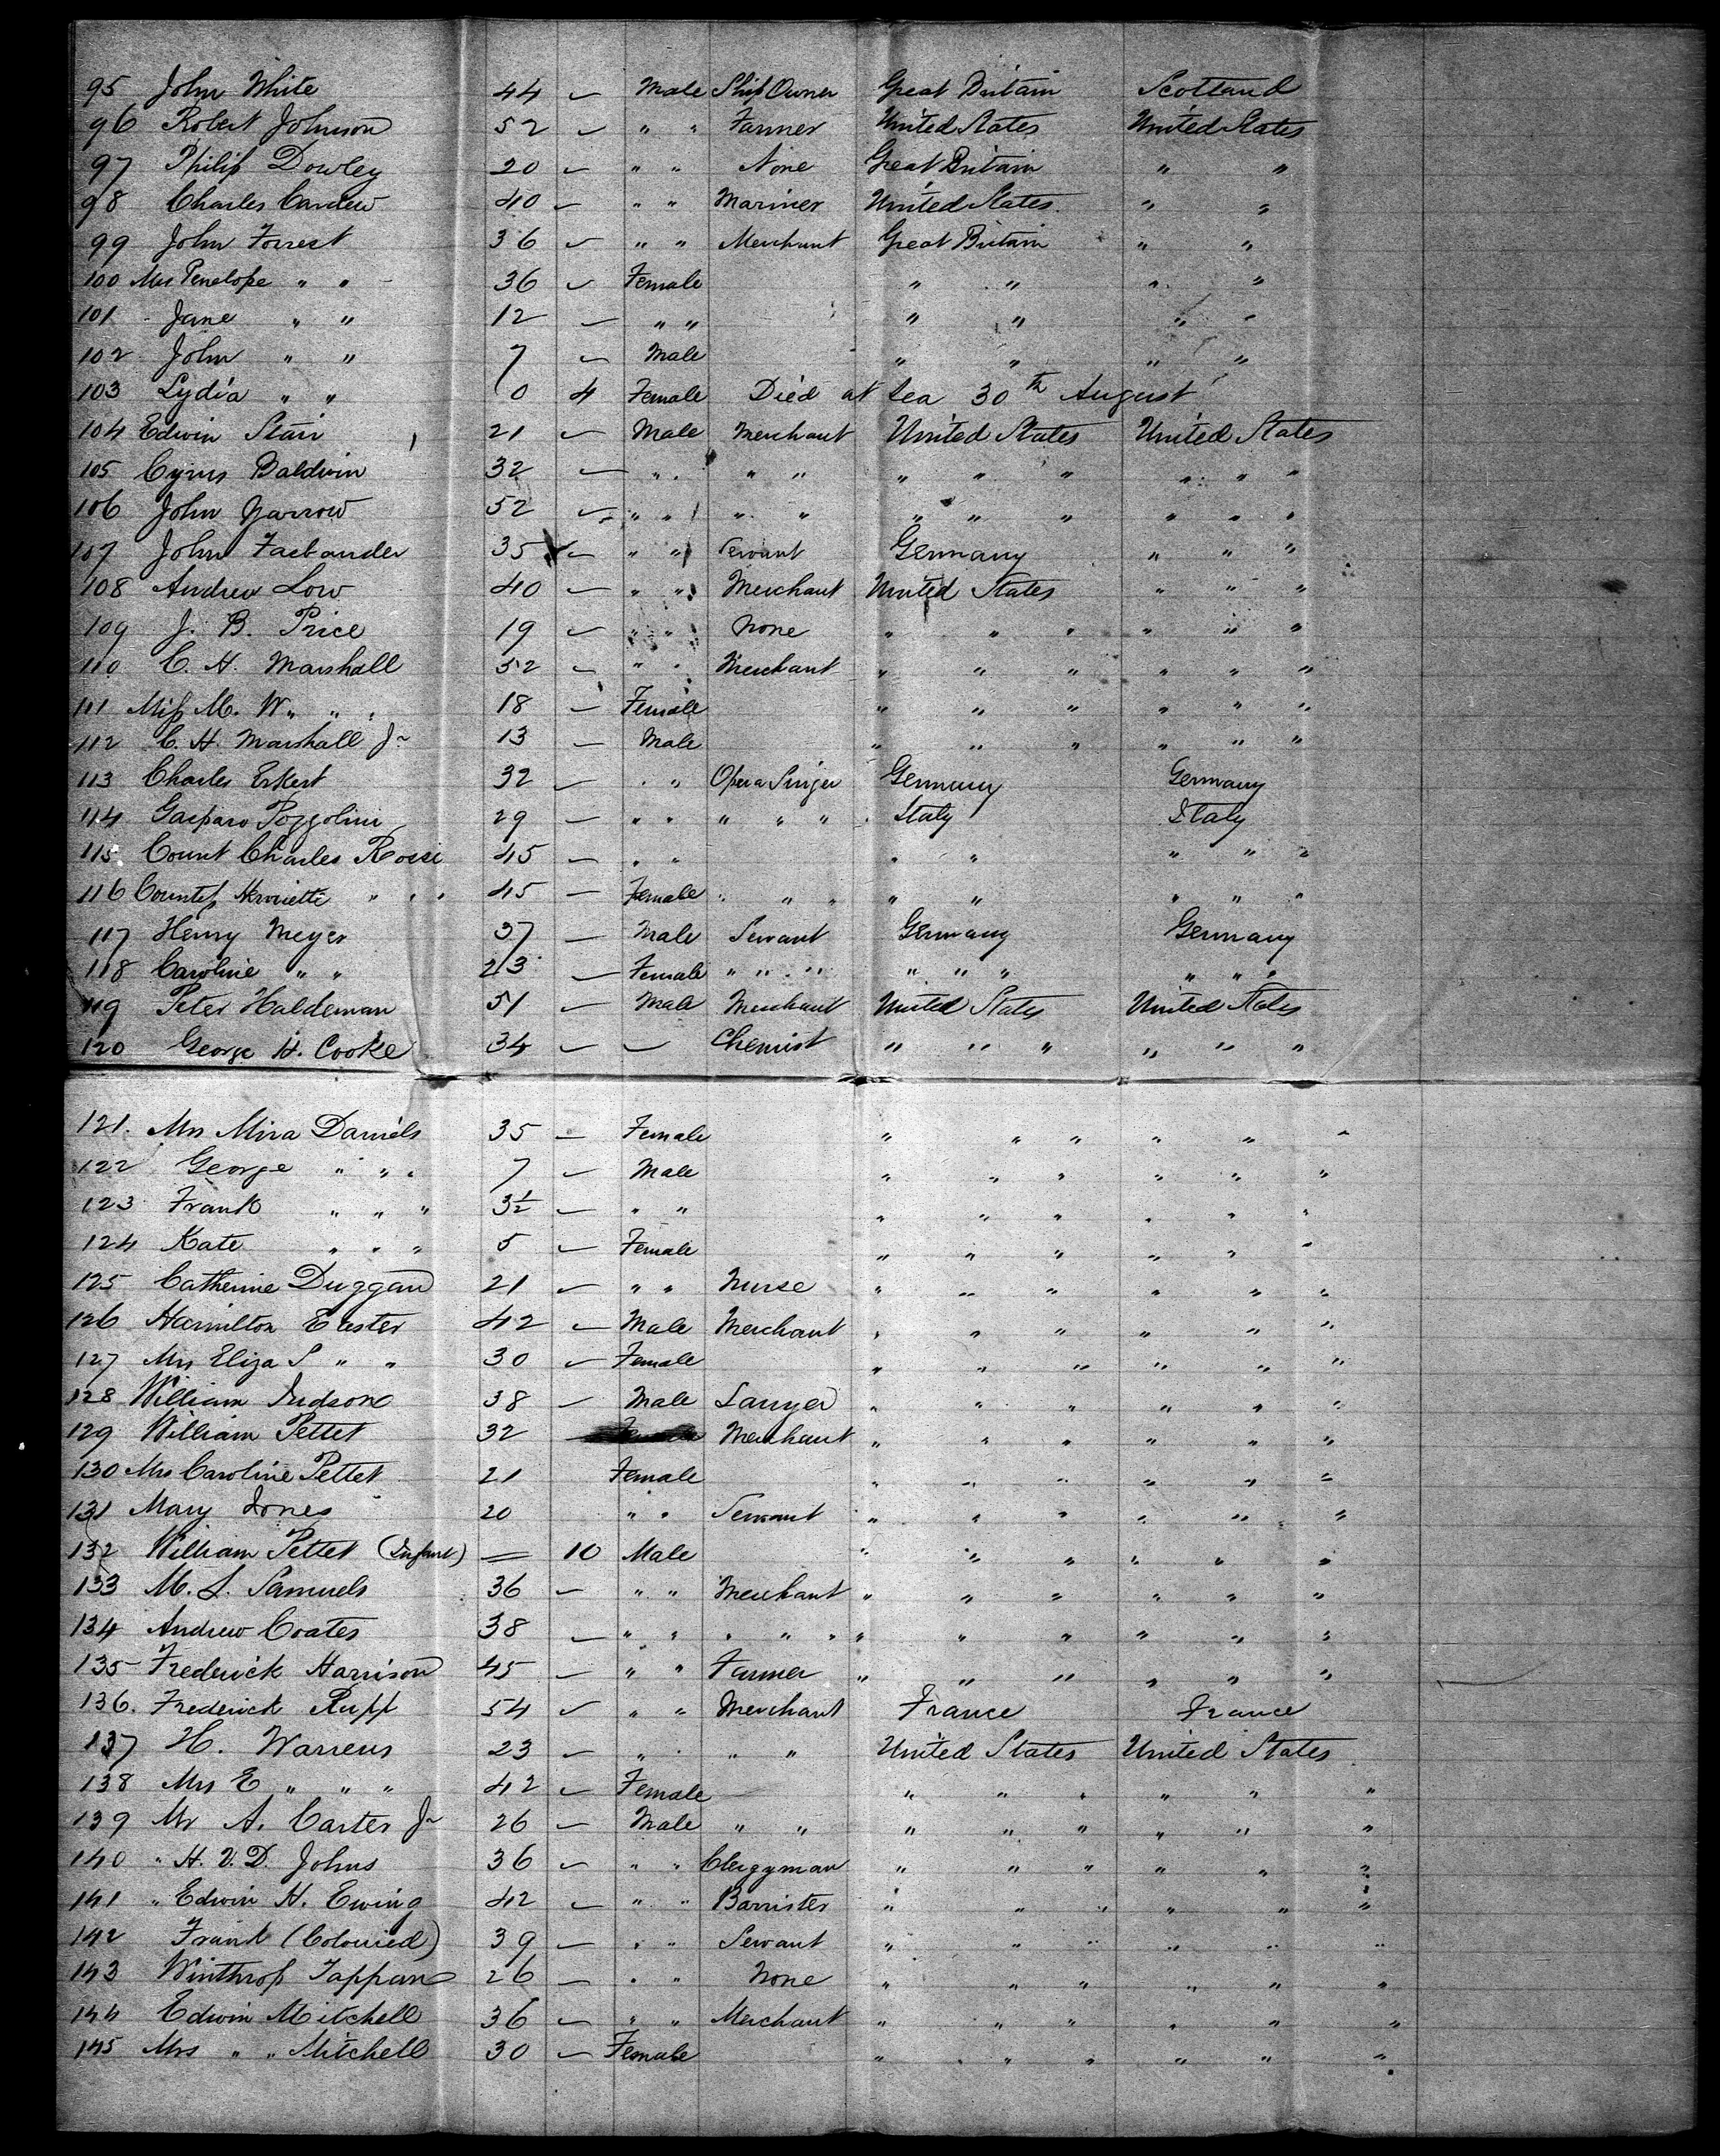 95 John White 44 — Male Ship Owner Great Britain Scotland
96 Robert Johnson 52 — " " Farmer United States United States
97 Philip Dowley 20 — " " None Great Britain " "
98 Charles Cardew 40 — " " Mariner United States " "
99 John Forrest 36 — " " Merchant Great Britain " "
100 Mrs Penelope " " 36 — Female " " " "
101 Jane " " 12 — " " " " " "
102 John " " 7 — Male " " " "
103 Lydia " " 0 4 Female Died at Sea 30th August
104 Edwin Starr 21 — Male Merchant United States United States
105 Cyrus Baldwin 32 — " " " " " " " " " "
106 John Yarrow 52 — " " " " " " " " " "
107 John Fasbander 35 — " " Servant Germany " " "
108 Andrew Low 40 — " " Merchant United States " " "
109 J. B. Price 19 — " " None " " " " " "
110 C. H. Marshall 52 — " " Merchant " " " " " "
111 Miss M. W. " " 18 — Female " " " " " "
112 C. H. Marshall Jr 13 — Male " " " " " "
113 Charles Eckert 32 — " " Opera Singer Germany Germany
114 Gasparo Pozzolini 29 — " " " " " Italy Italy
115 Count Charles Rossi 45 — " " " " " " "
116 Countess Henriette " " " 45 — Female " " " " " " " "
117 Henry Meyer 37 — Male Servant Germany Germany
118 Caroline " " 23 — Female " " " " " " " " " "
119 Peter Haldeman 51 — Male Merchant United States United States
120 George H. Cooke 34 — — Chemist " " " " " "
121. Mrs Mira Daniels 35 — Female " " " " " "
122 George " " " 7 — Male " " " " " "
123 Frank " " " 3½ — " " " " " " " "
124 Kate " " " 5 — Female " " " " " "
125 Catherine Duggan 21 — " " Nurse " " " " " "
126 Hamilton Easter 42 — Male Merchant " " " " " "
127 Mrs Eliza S " " 30 — Female " " " " " "
128 William Judson 38 — Male Lawyer " " " " " "
129 William Pettet 32 Merchant " " " " " "
130 Mrs Caroline Pettet 21 Female " " " " " "
131 Mary Jones 20 " " Servant " " " " " "
132 William Pettet (Infant) — 10 Male " " " " " "
133 M. S. Samuels 36 — " " Merchant " " " " " "
134 Andrew Coates 38 — " " " " " " " " " " "
135 Frederick Harrison 45 — " " Farmer " " " " " "
136. Frederick Rupp 54 — " " Merchant France France
137 H. Warrens 23 — " " " " United States United States
138 Mrs E " " " 42 — Female " " " " " "
139 Mr A. Carter Jr 26 — Male " " " " " " " "
140 " H. V. D. Johns 36 — " " Clergyman " " " " " "
141 " Edwin H. Ewing 42 — " " Barrister " " " " " "
142 Frank (Colouied) 39 — " " Servant " " " " " "
143 Winthrop Tappan 26 — " " None " " " " " "
144 Edwin Mitchell 36 — " " Merchant " " " " " "
145 Mrs " " Mitchell 30 — Female " " " " " "